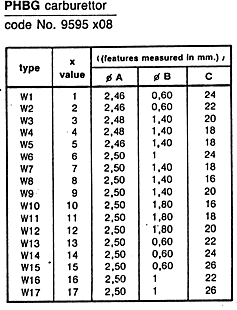 PHBG carburettor
code No. 9595 x08
type x value ((features measured in mm.) ,
ø A ø B C
W1 1 2,46 0,60 24
W2 2 2,46 0,60 22
W3 3 2,48 1,40 20
W4 4 2,48 1,40 18
W5 5 2,46 1,40 18
W6 6 2,50 1 24
W7 7 2,50 1,40 18
W8 8 2,50 1,40 16
W9 9 2,50 1,40 20
W10 10 2,50 1,80 16
W11 11 2,50 1,80 18
W12 12 2,50 1,80 20
W13 13 2,50 0,60 22
W14 14 2,50 0,60 24
W15 15 2,50 0,60 26
W16 16 2,50 1 22
W17 17 2,50 1 26